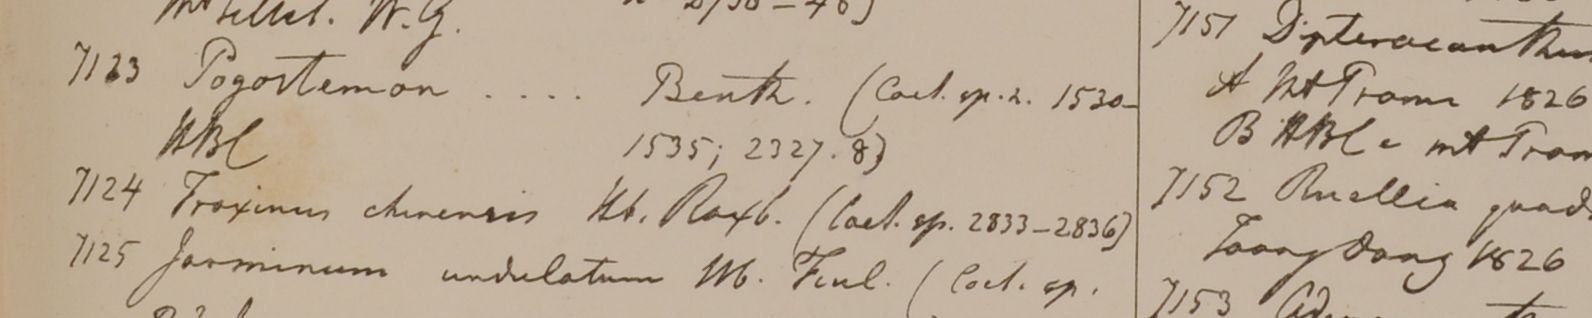 W.G.
7123 Pogostemon .... Benth. (Coel. sp. n. 1530-
HBC 1535; 2327.8)
7124 Fraxinus chinensis Hb. Roxb. (Coel. sp. 2833-2836)
7125 Jasminum undulatum Hb. Finl. (Coel. sp.
7151 Dipteracanthus
A Mt Prome 1826
B HBC e mt Prom
7152 Ruellia quad
Taong Dong 1826
7153